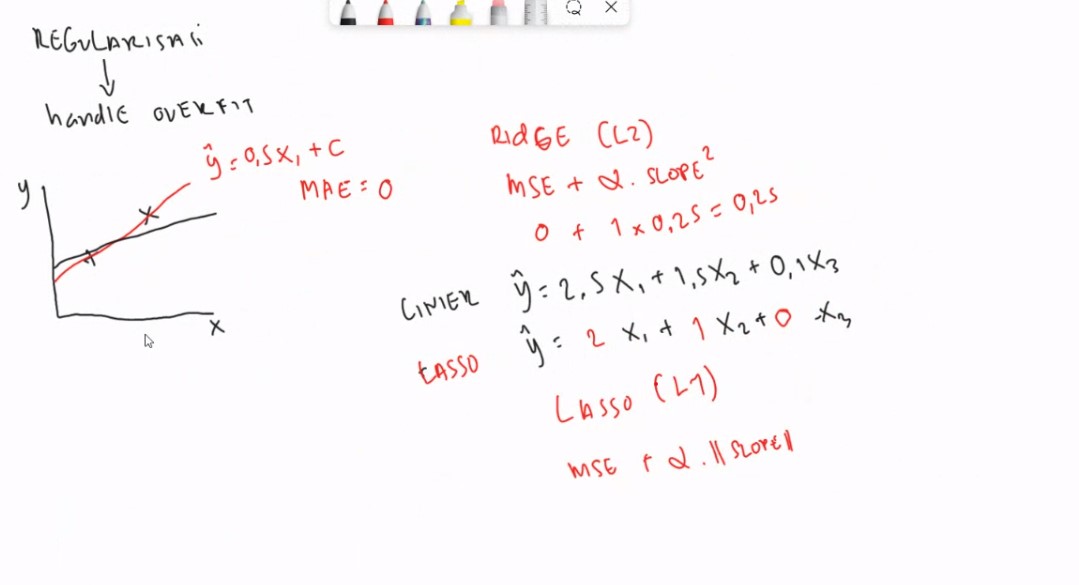 REGULARISASi
handlE OVERFIT
ŷ = 0,5X₁ + C
MAE = 0
y
X
RIdGE (L2)
MSE + α. SLOPE²
0 + 1 x 0,25 = 0,25
LINIER ŷ = 2,5X₁ + 1,5X₂ + 0,1X₃
LASSO ŷ = 2 X₁ + 1 X₂ + 0 X₃
LASSO (L1)
MSE + α. || SLOPE ||